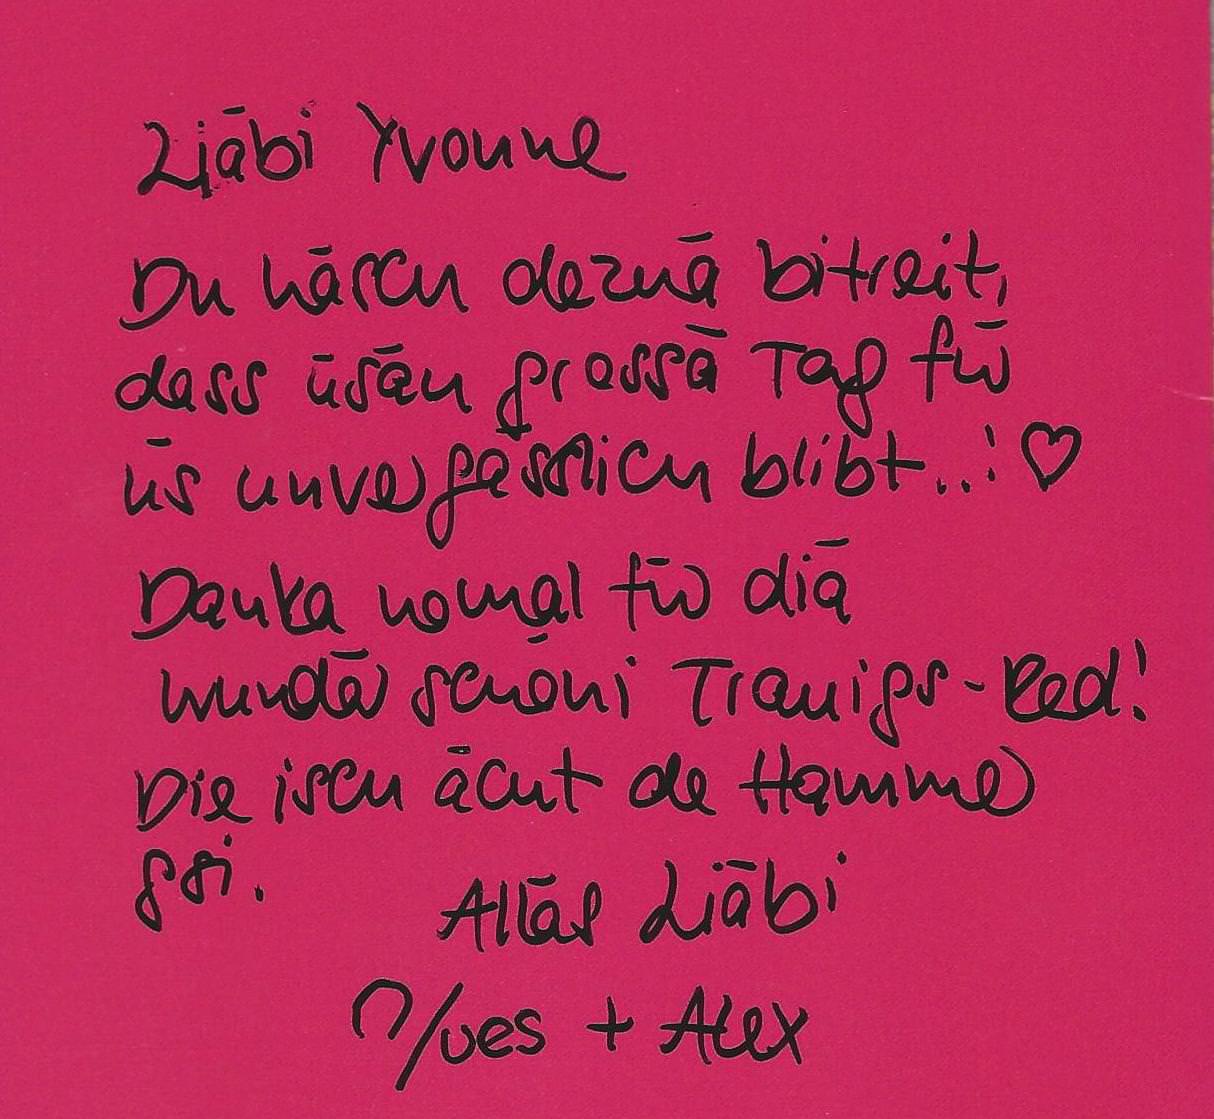 Liäbi Yvonne
Du häsch dezuä bitreit,
dass üsän grossä Tag für
üs unvergässlich blibt...! ♡
Danka nomal für diä
wundär schöni Trauigs-Red!
Die isch ächt de Hammer
gsi.
Alläs Liäbi
Yves + Alex